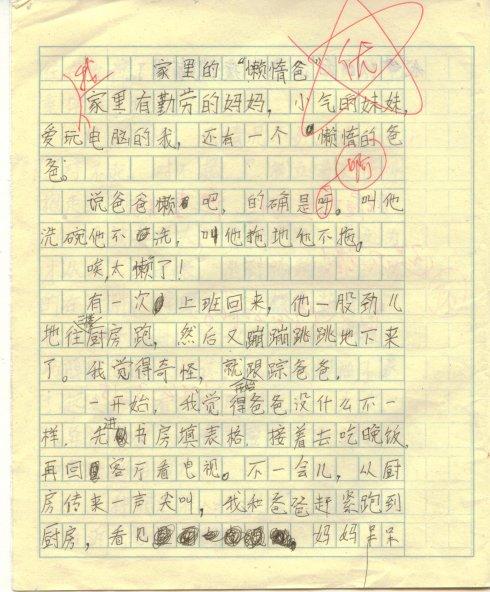 家里的“懒惰爸”
优
我
家里有勤劳的妈妈，小气的妹妹，
爱玩电脑的我，还有一个懒惰的爸
爸。
啊
说爸爸懒吧，的确是呀。叫他
洗碗他不洗，叫他拖地他不拖。
唉，太懒了！
有一次上班回来，他一股劲儿
地往厨房跑，然后又蹦蹦跳跳地下来
了。我觉得奇怪，就跟踪爸爸。
一开始，我觉得爸爸没什么不一
样．先进书房填表格．接着去吃晚饭，
再回客厅看电视。不一会儿，从厨
房传来一声尖叫，我和爸爸赶紧跑到
厨房，看见妈妈呆呆